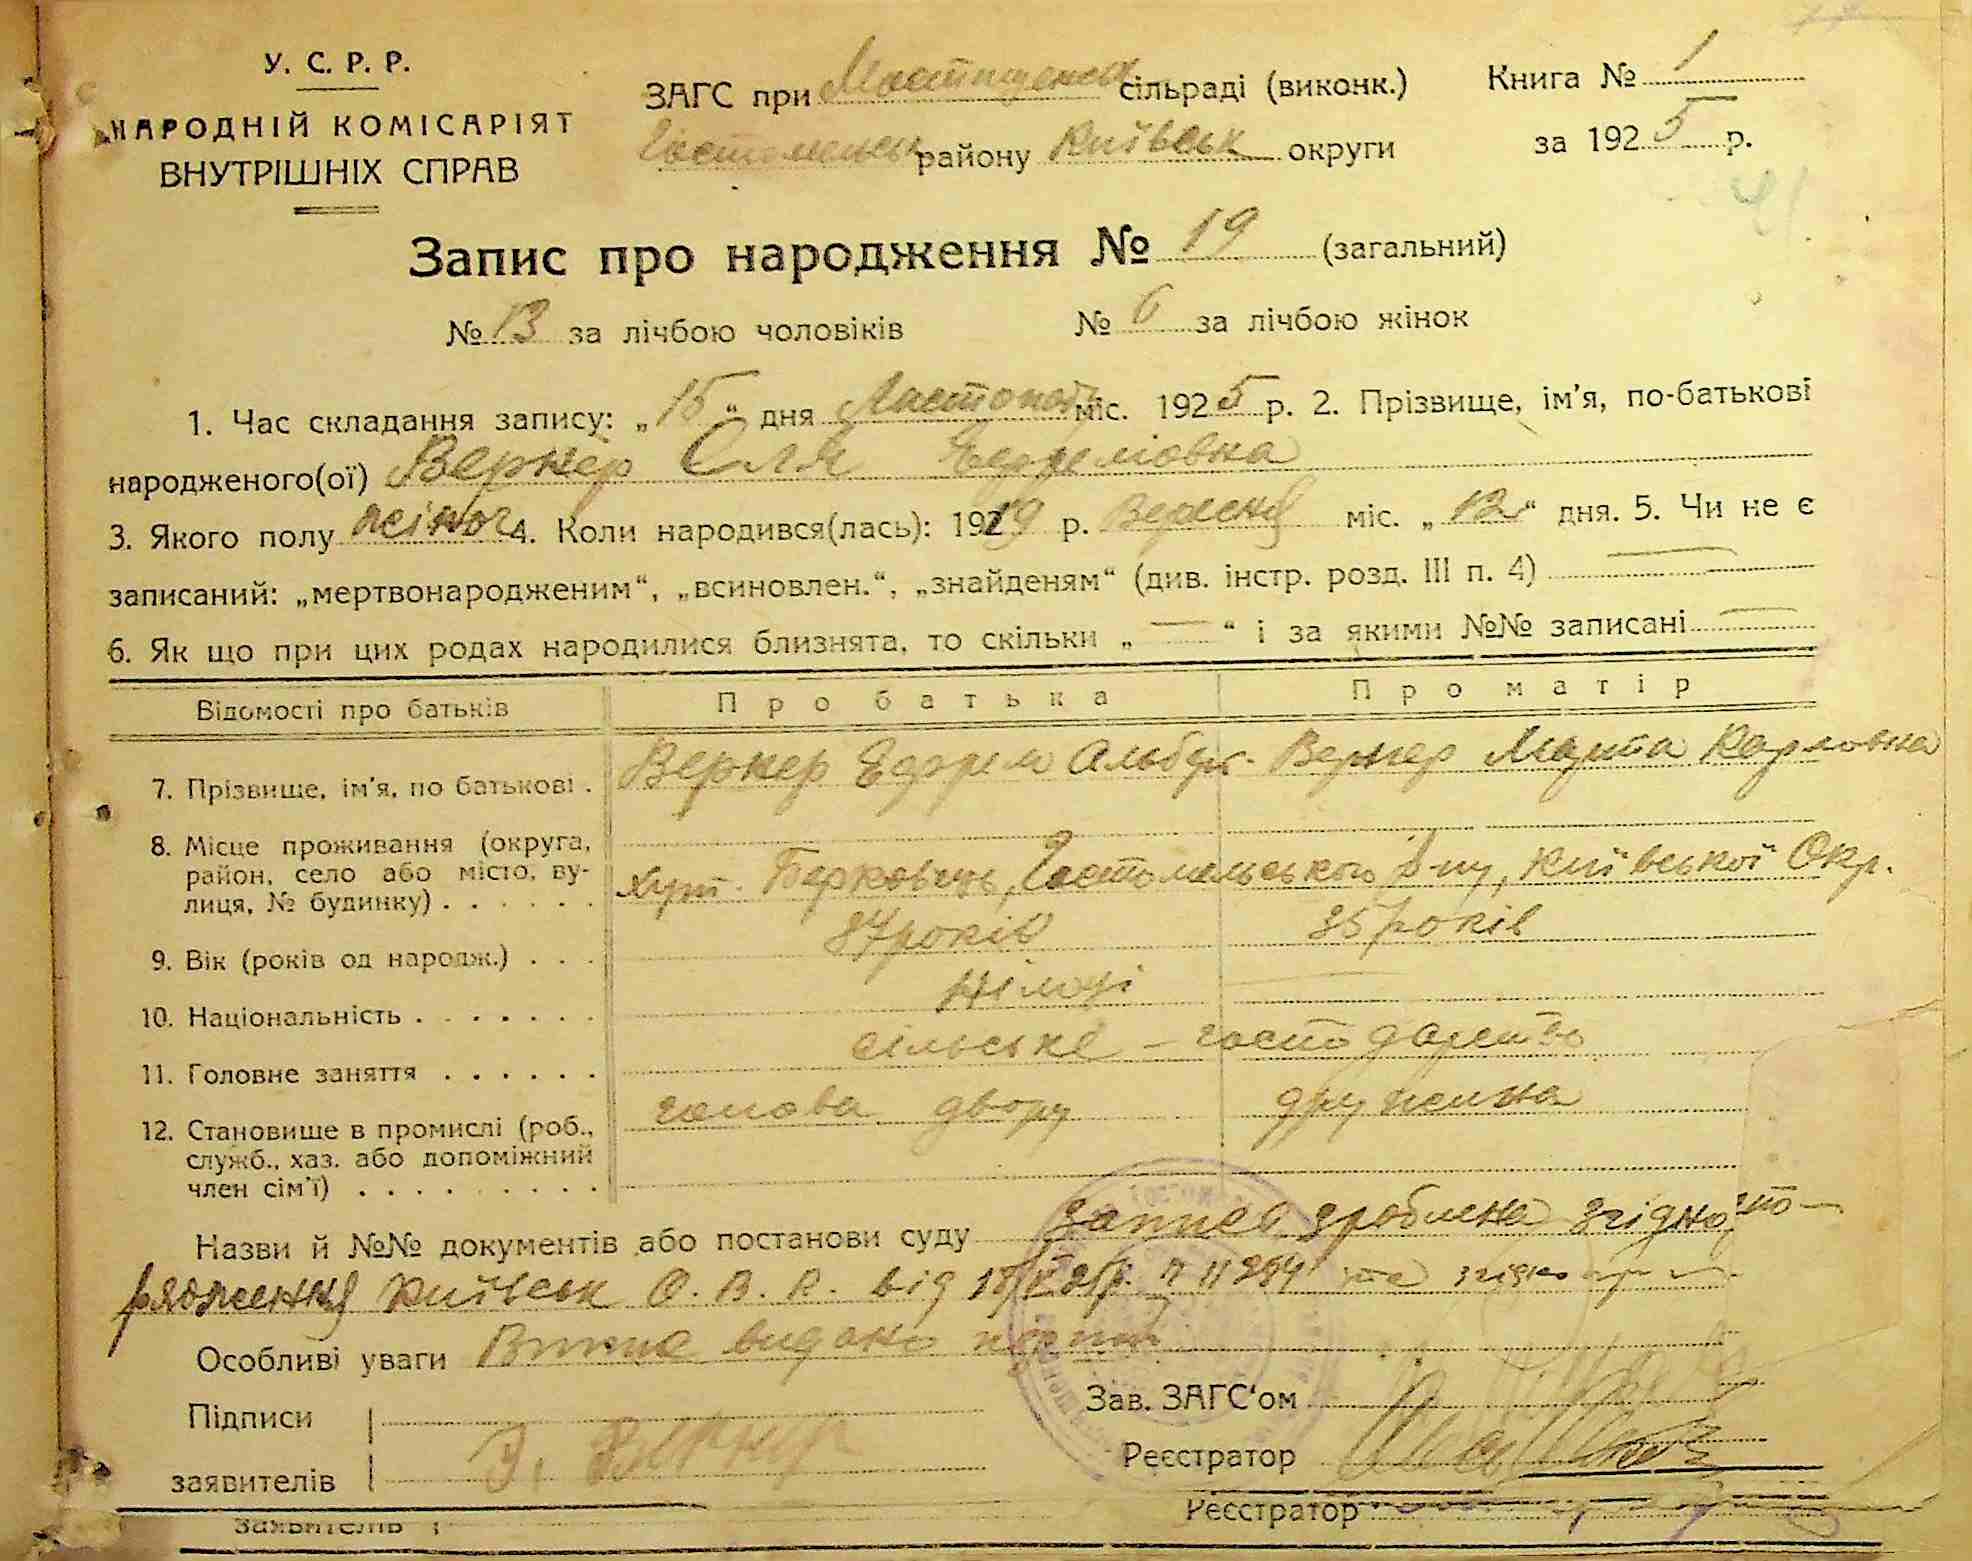 У. С. Р. Р.
НАРОДНІЙ КОМІСАРІЯТ
ВНУТРІШНІХ СПРАВ
ЗАГС при Мостищенск сільраді (виконк.)
Гостомельск району Київськ округи
Книга № 1
за 1925 р.
41
Запис про народження № 19 (загальний)
№ 13 за лічбою чоловіків № 6 за лічбою жінок
1. Час складання запису: „15“ дня Листопад міс. 1925 р. 2. Прізвище, ім'я, по-батькові
народженого(ої) Вернер Еля Ефремовна
3. Якого полу жіноч 4. Коли народився(лась): 1919 р. Вересня міс. „12“ дня. 5. Чи не є
записаний: „мертвонародженим“, „всиновлен.“, „знайденям“ (див. інстр. розд. III п. 4) —
6. Як що при цих родах народилися близнята, то скільки „—“ і за якими №№ записані —
Відомості про батьків Про батька Про матір
7. Прізвище, ім'я, по батькові . Вернер Ефрем Альбер. Вернер Марта Карловна
8. Місце проживання (округа,
район, село або місто, ву-
лиця, № будинку) . . . . . . Хут. Берковець, Гостомельського Р-ну, Київської Окр.
9. Вік (років од народж.) . . . 37 років 35 років
10. Національність . . . . . . . Німці
11. Головне заняття . . . . . . сільське – господарство
12. Становище в промислі (роб.,
служб., хаз. або допоміжний
член сім'ї) . . . . . . . . . голова двору дружина
Назви й №№ документів або постанови суду запись зроблена згідно по-
рядження Київськ О. В. К. від та згідно
Особливі уваги Випис видано
Підписи
заявителів Э. Вернер
Зав. ЗАГС'ом
Реєстратор
Заявителів
Реєстратор